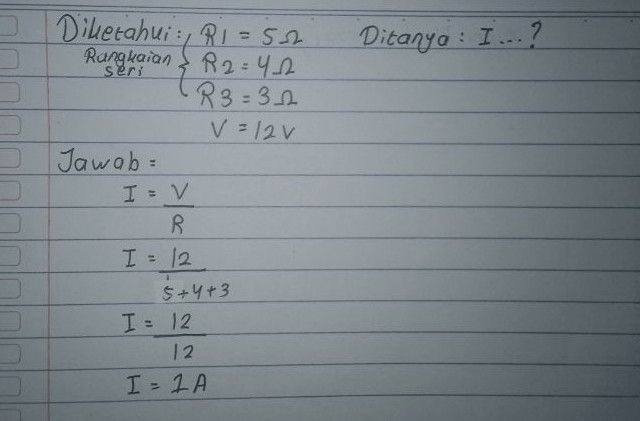 Diketahui : R1 = 5Ω Ditanya : I...?
Rangkaian seri { R2 = 4Ω
R3 = 3Ω
V = 12V
Jawab =
I = V
R
I = 12
5+4+3
I = 12
12
I = 1A